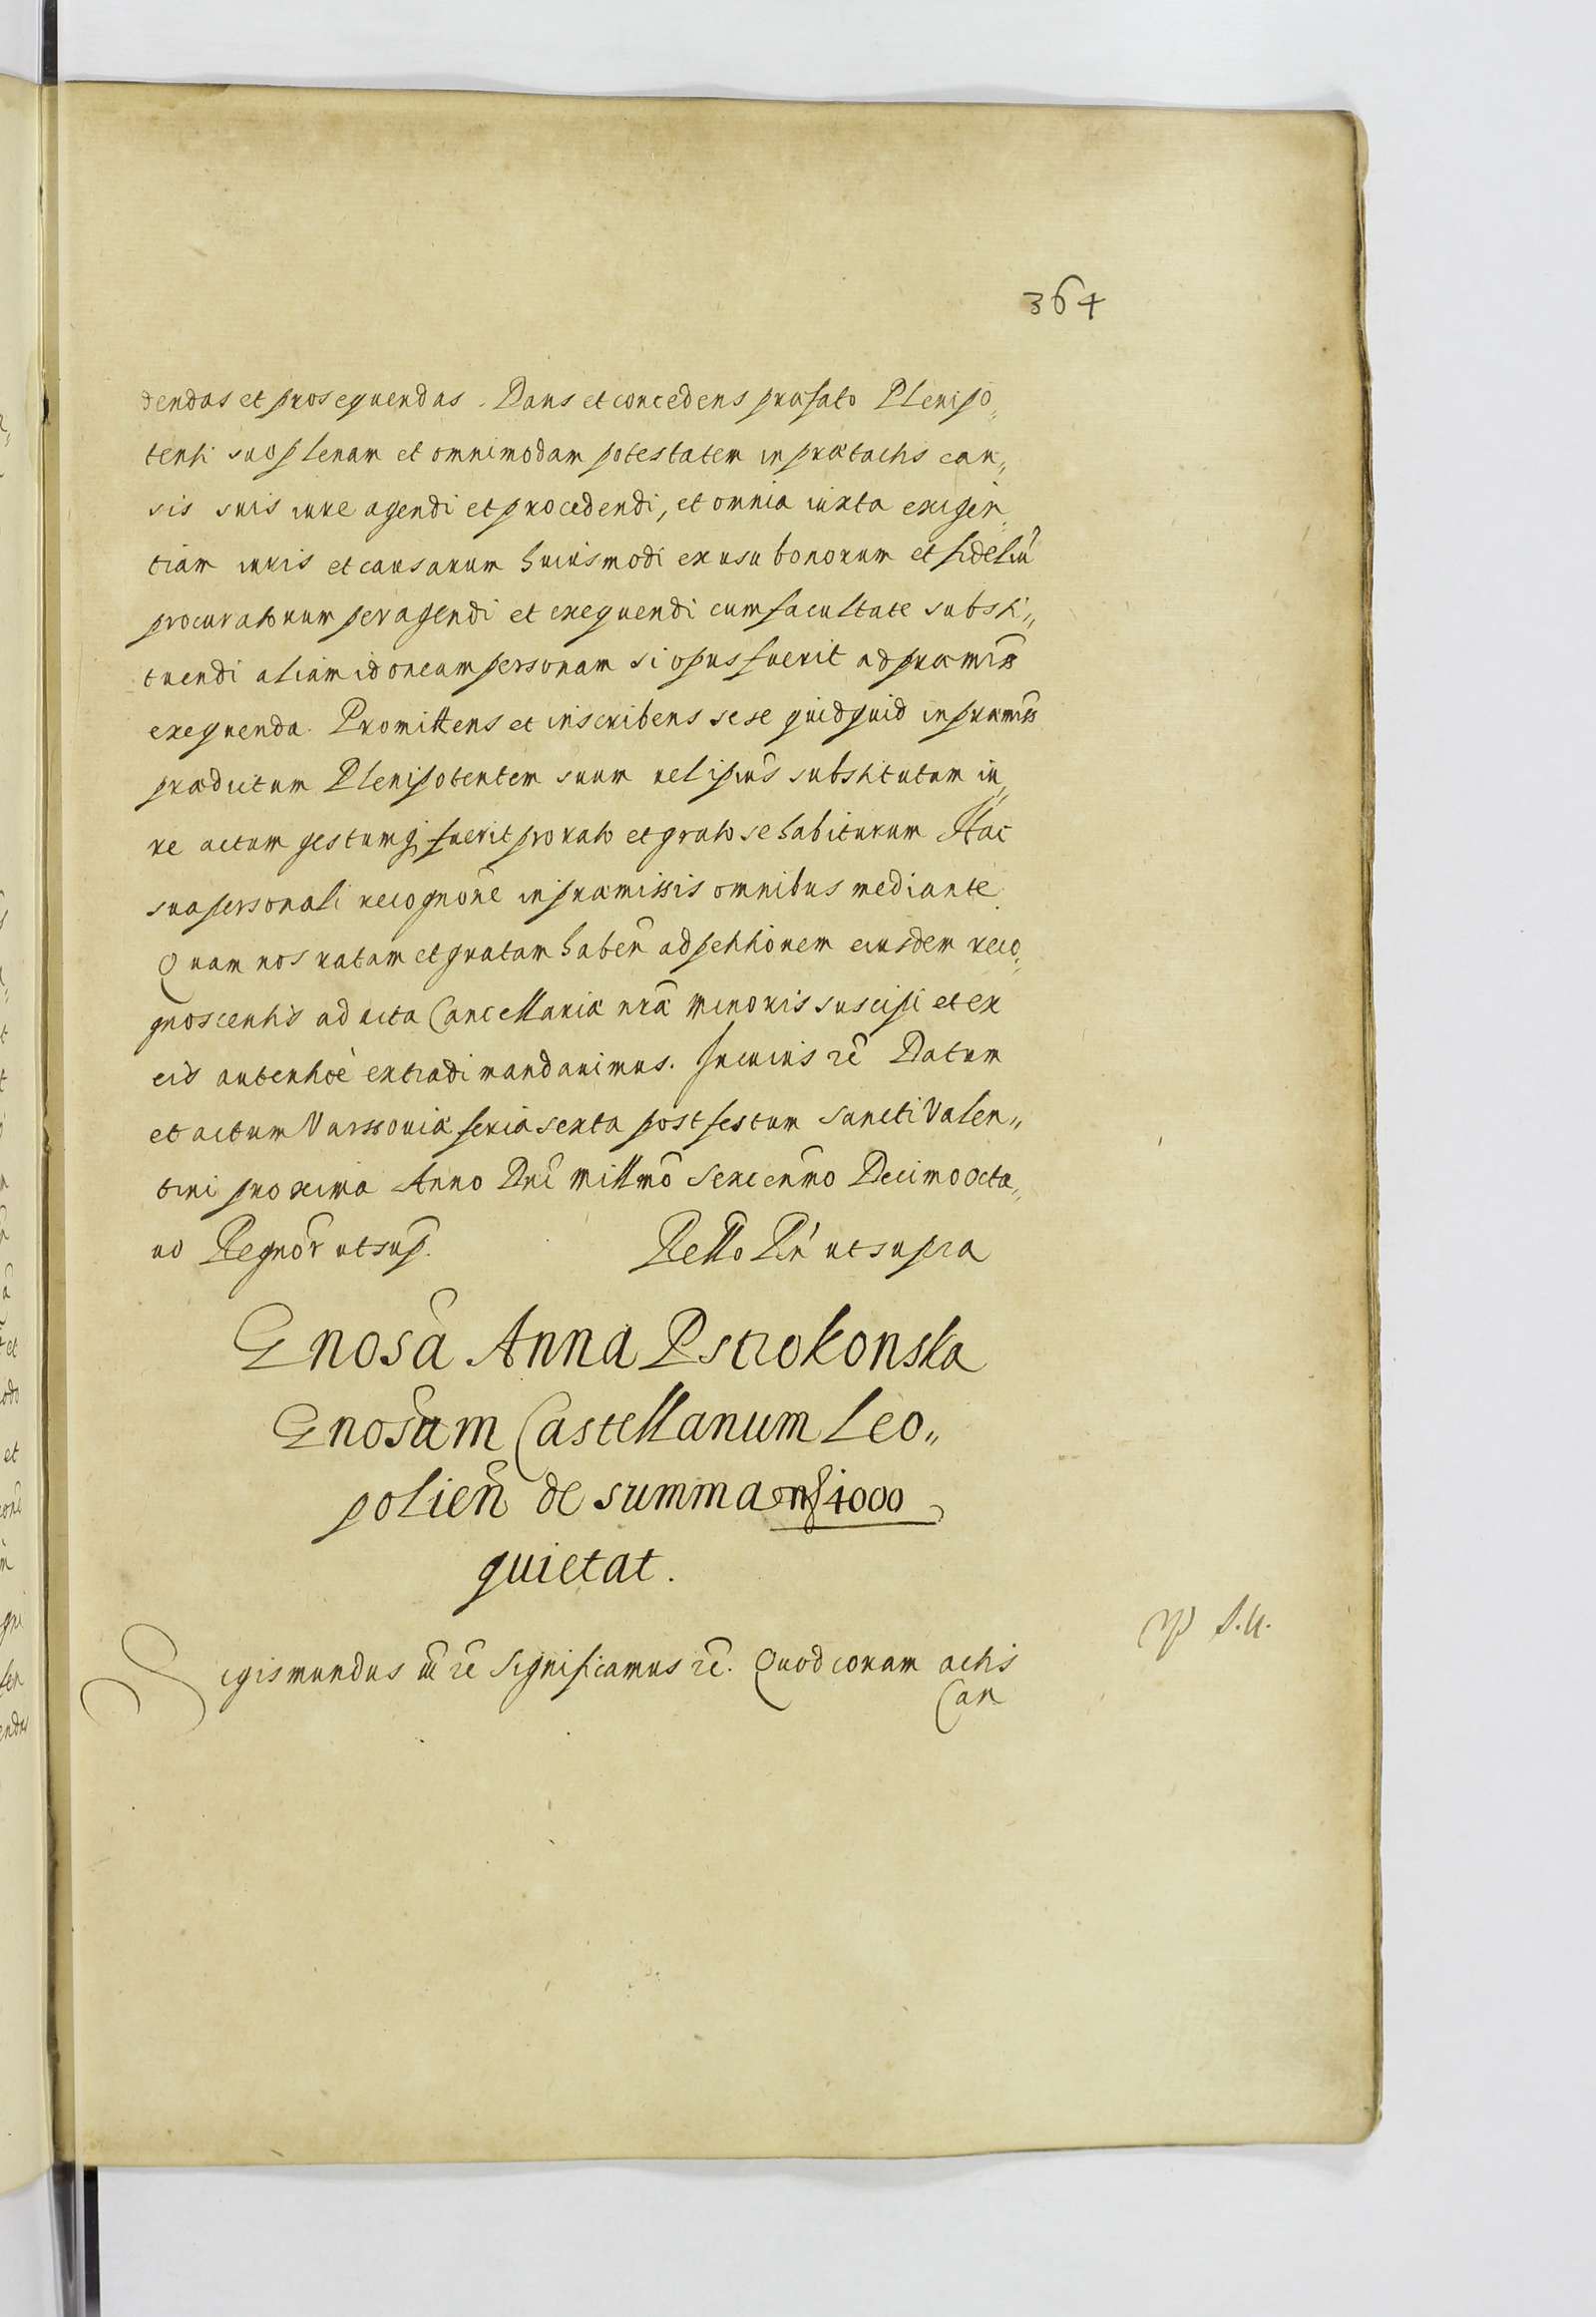 364
dendas et prosequendas. Dans et concedens præfato Plenipo„
tenti suo plenam et omnimodam potestatem in prætactis cau„
sis suis iure agendi et procedendi, et omnia iuxta exigen„
tiam iuris et causarum huiusmodi ex usu bonorum et fideliũ
procuratorum peragendi et exequendi cum facultate substi„
tuendi aliam idoneam personam si opus fuerit ad præmiss̃
exequenda. Promittens et inscribens sese quidquid in præmiss̃
prædictum Plenipotentem suum vel ipsiũs substitutum iu„
re actum gestumq₃ fuerit pro rato et grato se habiturum Hac
sua personali recognõne in præmissis omnibus mediante.
Quam nos ratam et gratam habeñ ad petitionem eiusdem reco„
gnoscentis ad acta Cancellariæ nrã minoris suscipi et ex
eis autenticè extradi mandavimus. In cuius rẽ Datum
et actum Varssoviæ feria sexta post festum Sancti Valen„
tini proxima Anno Dnĩ Millmõ Sexcenmõ Decimo octa„
uo Regnor̃ ut sup̃.
Relĩo Pn̈ ut supra
Gnosã Anna Pstrokonska
Gnosũm Castellanum Leo„
polieñ de summa mf 4000
quietat.
Sigismundus iii rẽ Significamus rẽ. Quod coram actis
Can